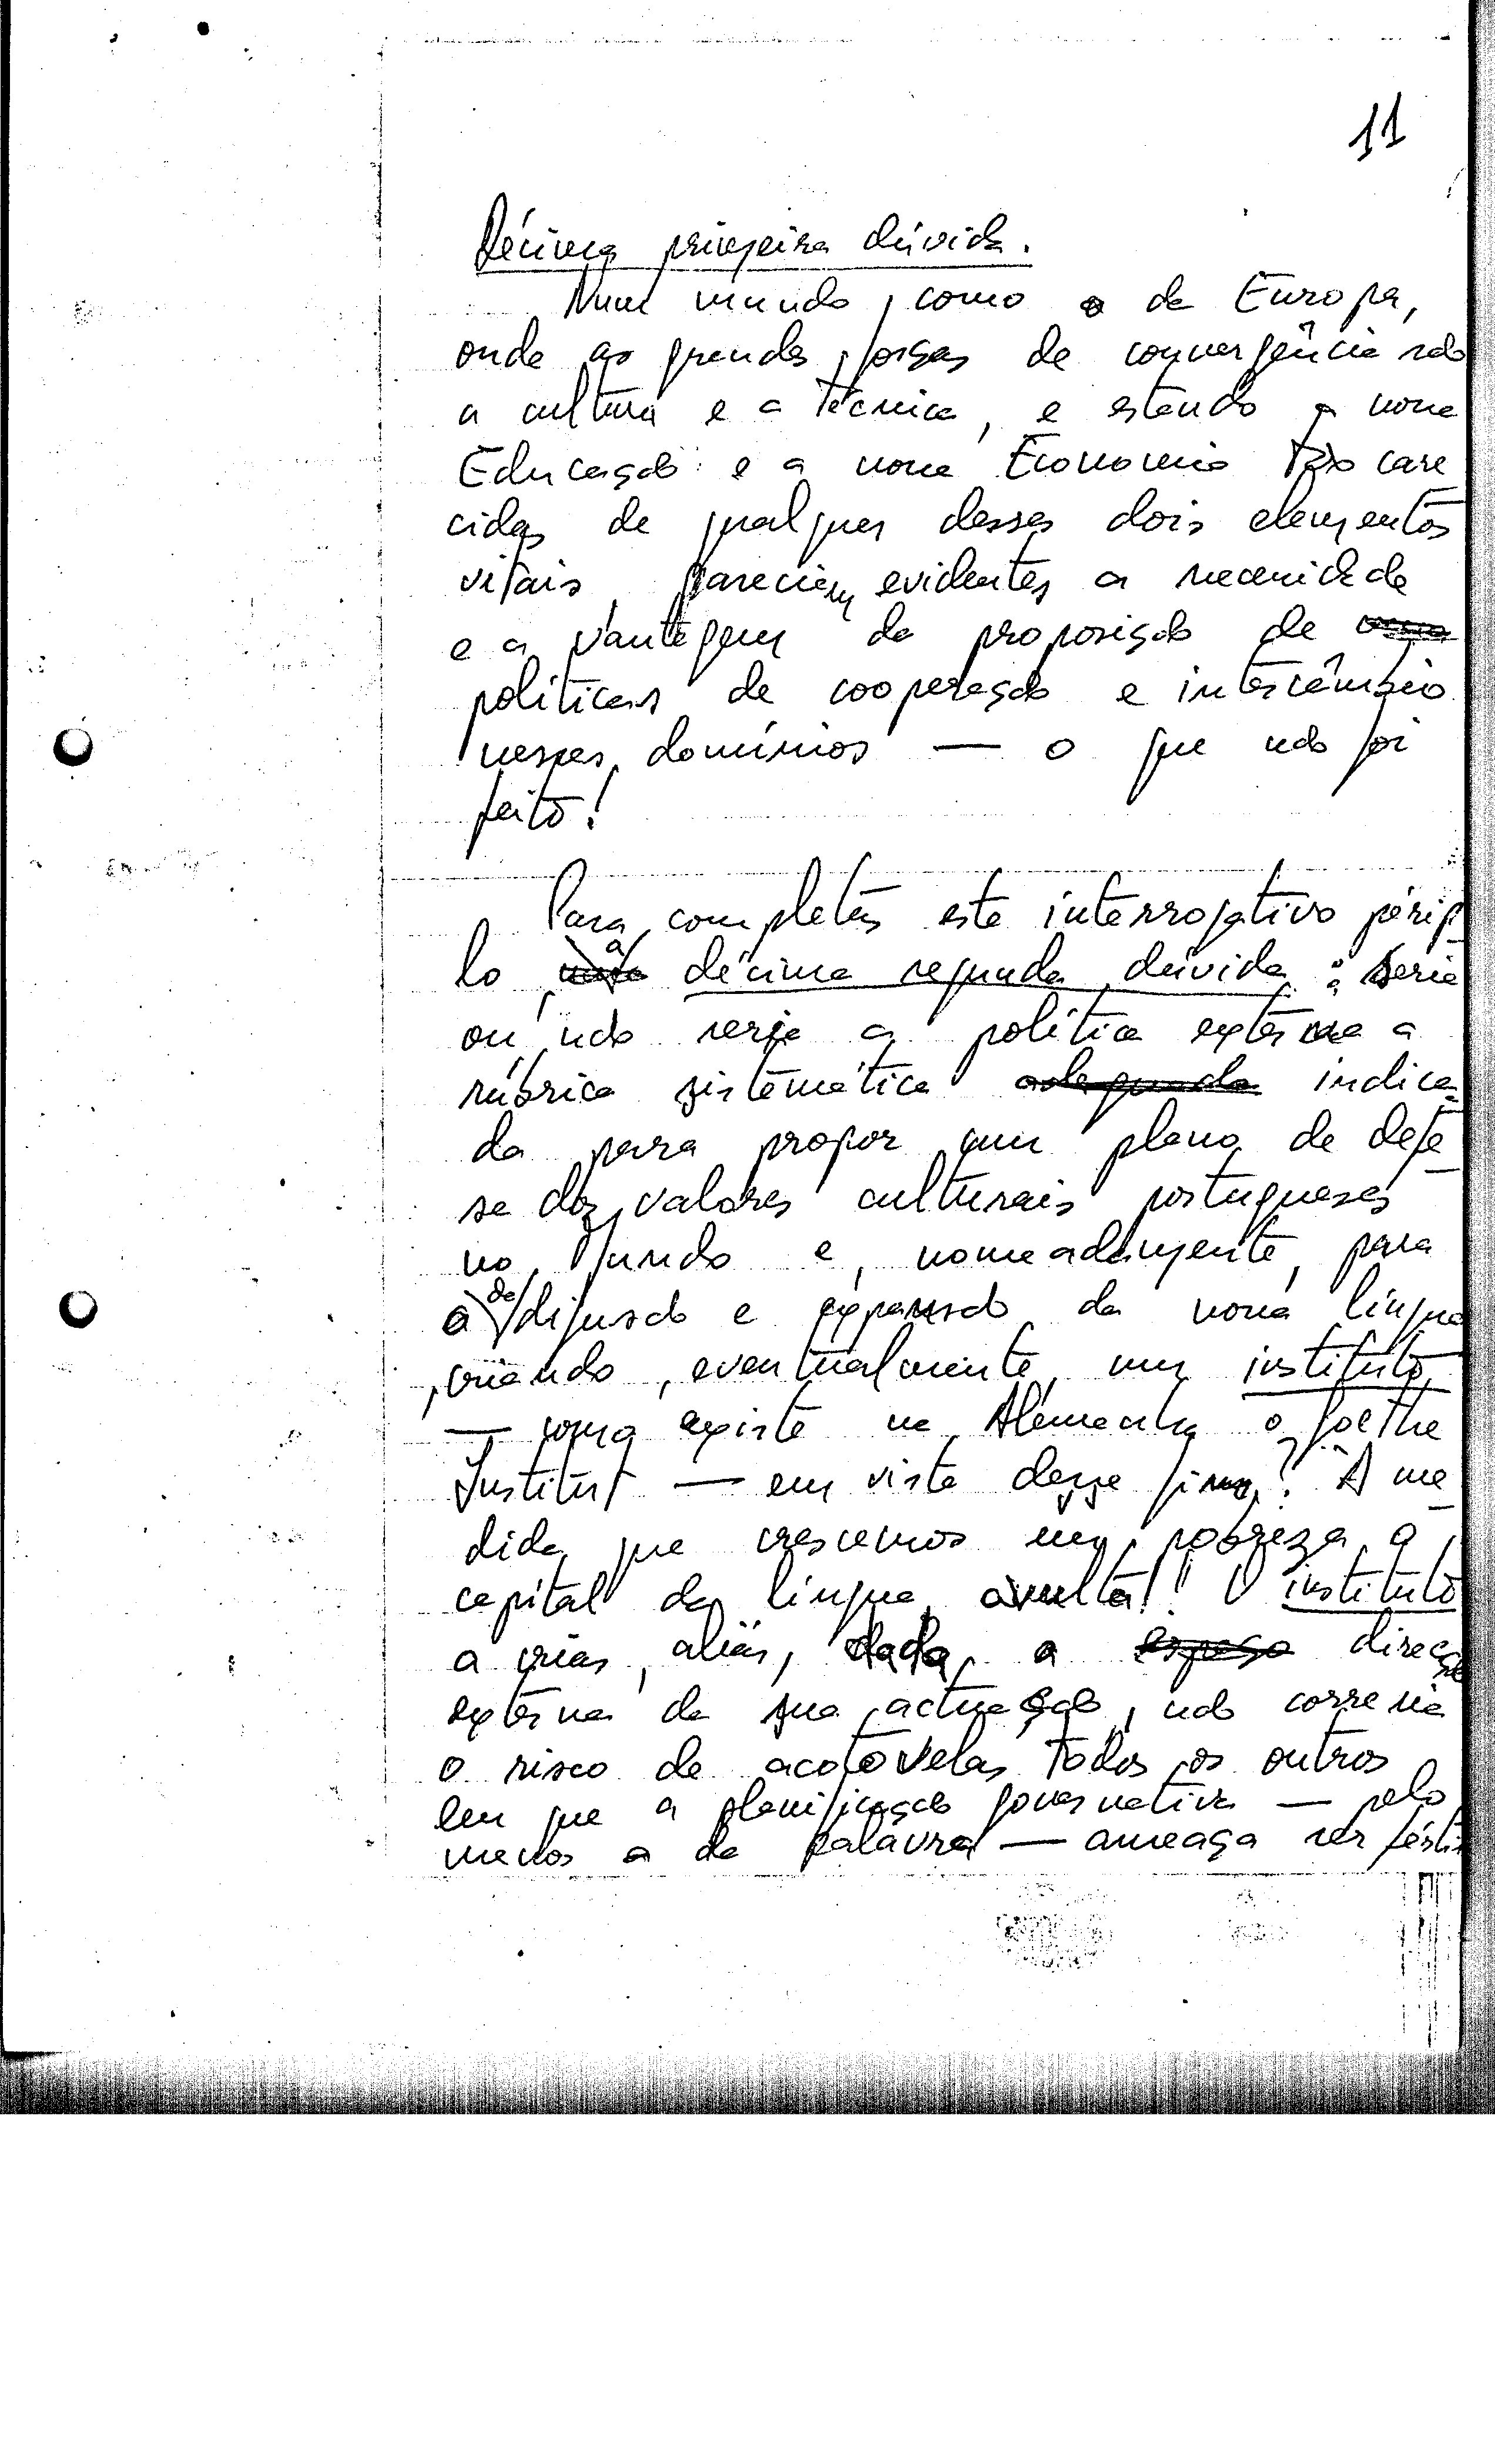 11
Décima primeira dúvida.
Num mundo, como o da Europa,
onde as grandes forças de convergência são
a cultura e a técnica, e estando a nossa
Educação e a nossa Economia tão care
cidas de qualquer desses dois elementos
vitais, pareciam evidentes a necessidade
e a vantagem da proposição de
políticas de cooperação e intercâmbio
nesses domínios — o que não foi
feito!
Para completar este interrogativo périp-
lo, a décima segunda dúvida: seria
ou não seria a política externa a
rúbrica sistemática adequada indica-
da para propor um plano de defe-
sa dos valores culturais portugueses
no Mundo e, nomeadamente, para
a da difusão e expansão da nossa língua
criando, eventualmente, um instituto
— como existe na Alemanha o Goethe
Institut — em vista desse fim? À me-
dida que crescemos em pobreza, o
capital da língua avulta! O instituto
a criar, aliás, dada a direcção
externa da sua actuação, não correria
o risco de acotovelar todos os outros
em que a planificação governativa — pelo
menos a da palavra — ameaça ser fértil